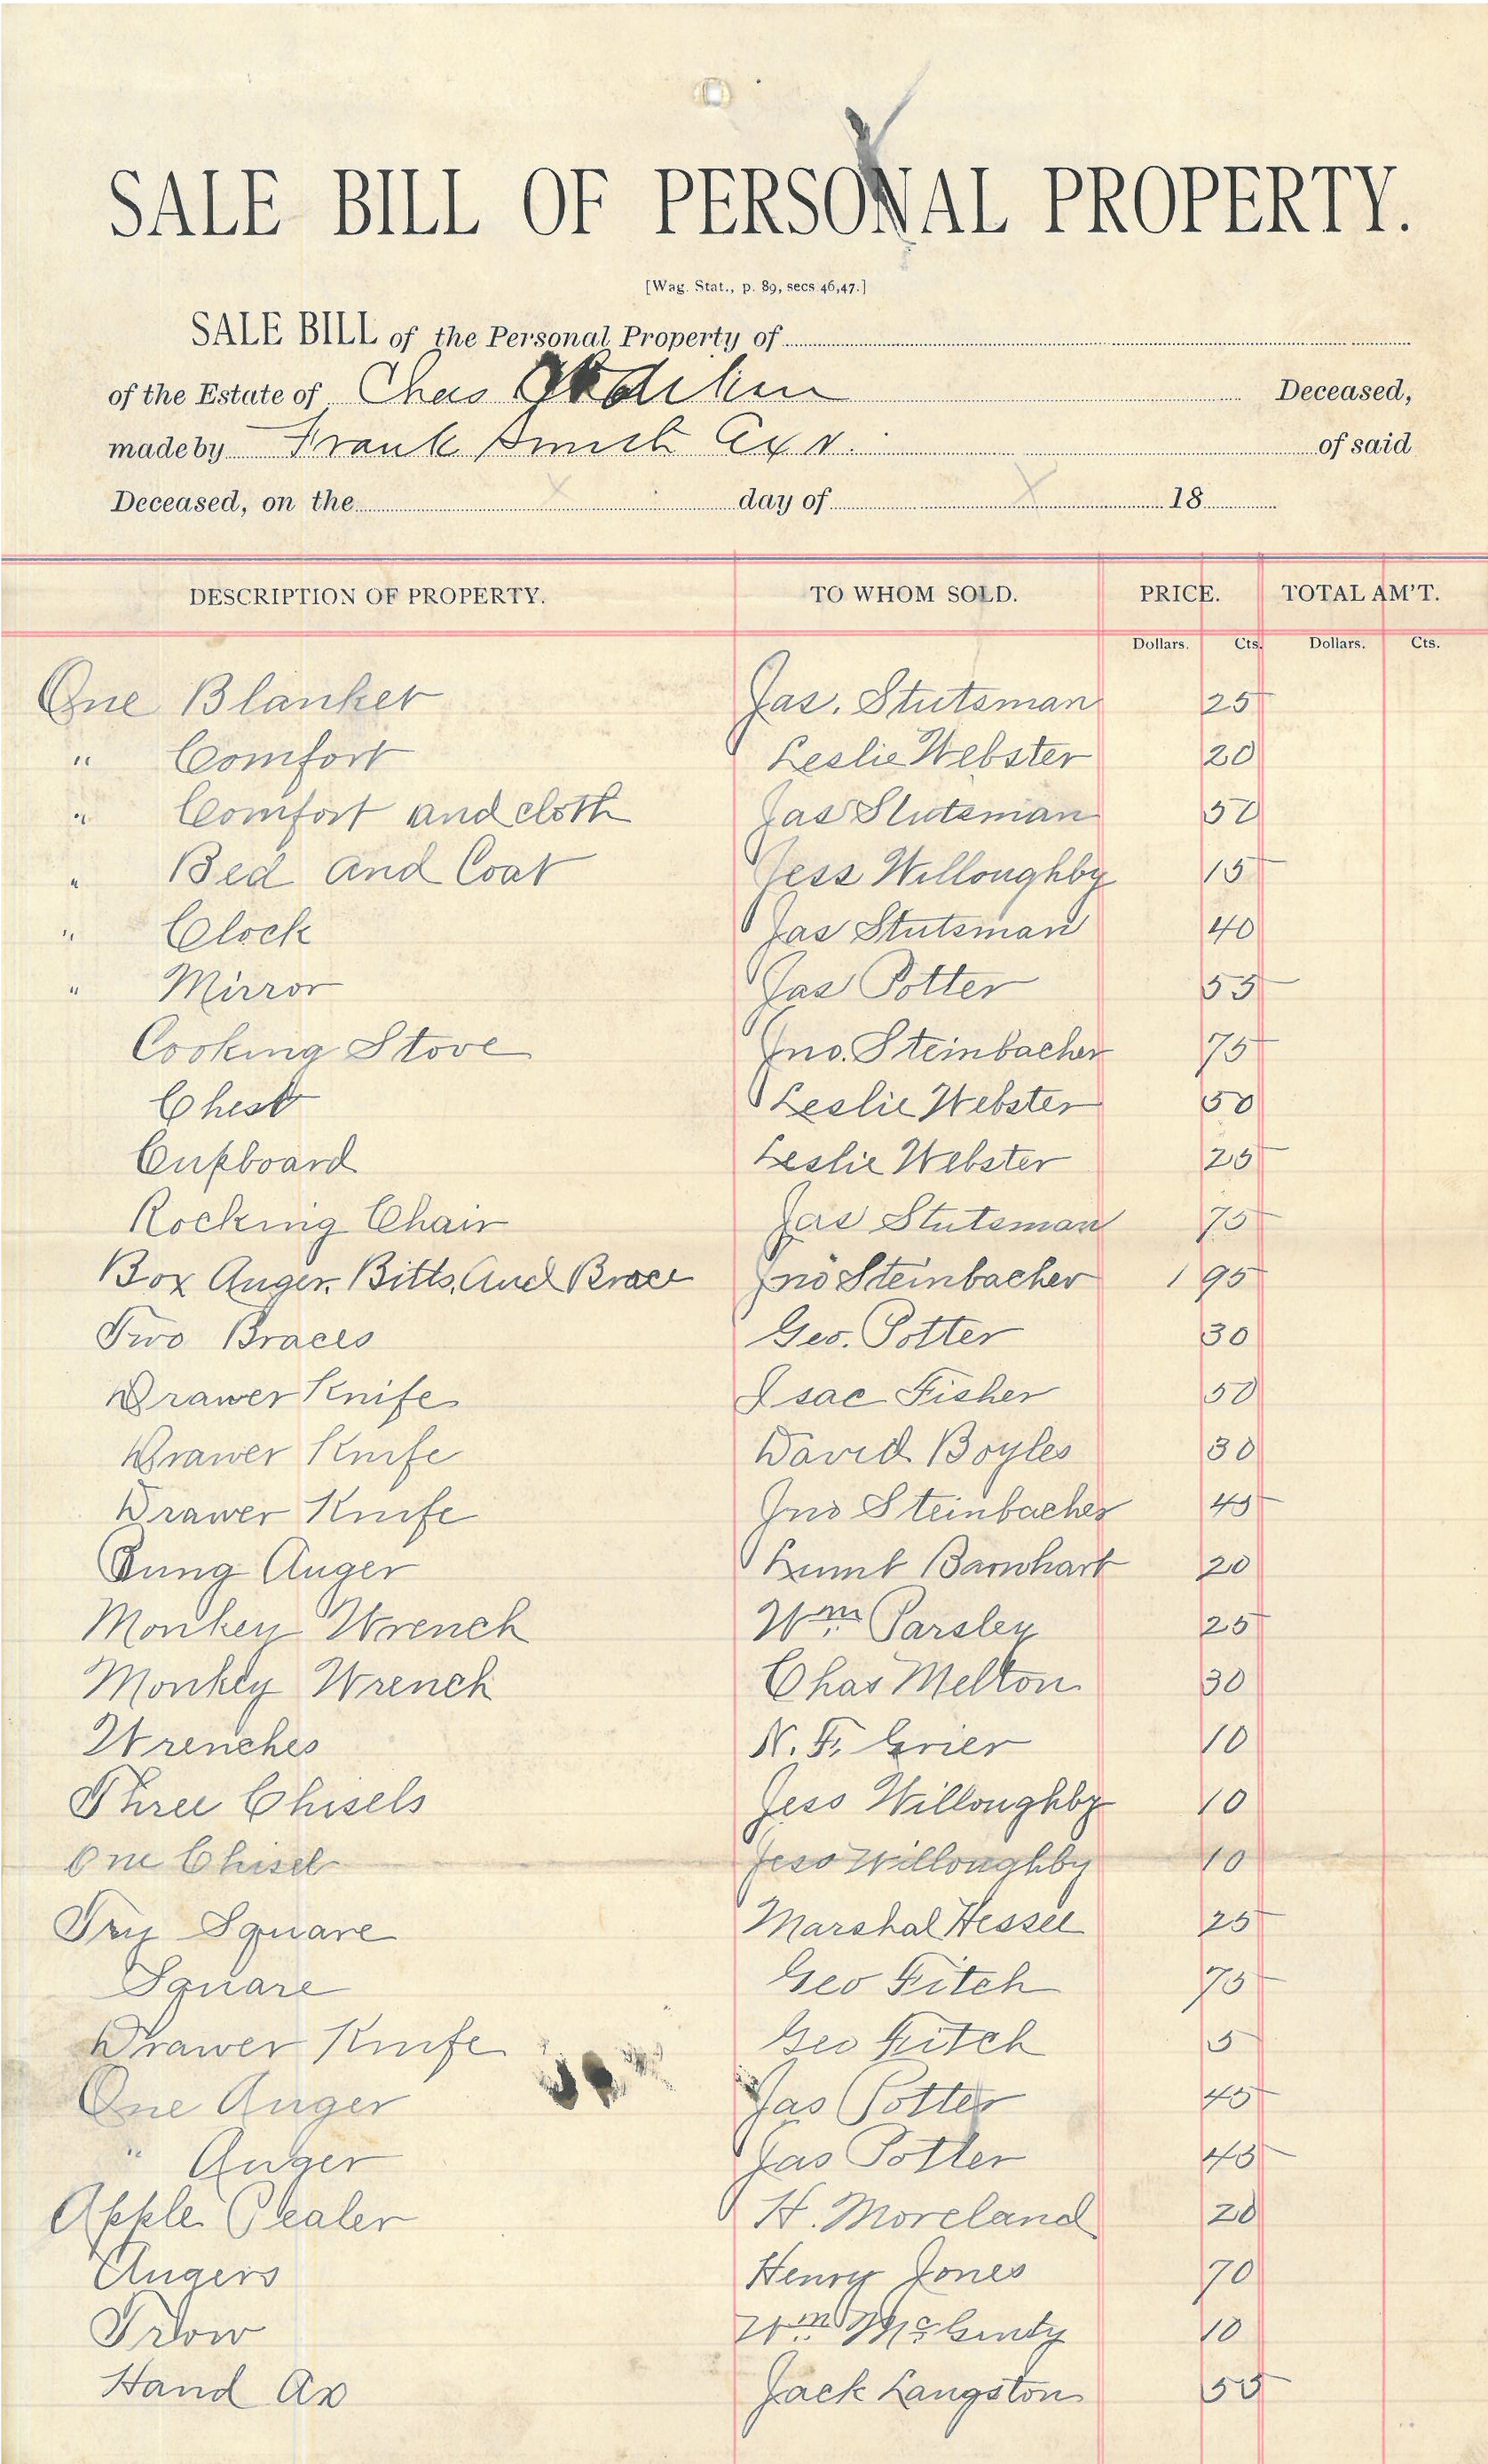 SALE BILL OF PERSONAL PROPERTY.
[Wag. Stat., p. 89, secs 46,47.]
SALE BILL of the Personal Property of
of the Estate of Chas Deceased,
made by Frank Smith Exr. of said
Deceased, on the x day of x 18
DESCRIPTION OF PROPERTY. TO WHOM SOLD. PRICE. TOTAL AM'T.
Dollars. Cts. Dollars. Cts.
One Blanket Jas. Stutsman 25
" Comfort Leslie Webster 20
" Comfort and cloth Jas Stutsman 50
" Bed and Coat Jess Willoughby 15
" Clock Jas Stutsman 40
" Mirror Jas Potter 55
Cooking Stove Jno. Steinbacher 75
Chest Leslie Webster 50
Cupboard Leslie Webster 25
Rocking Chair Jas Stutsman 75
Box Auger, Bitts, And Brace Jno Steinbacher 1 95
Two Braces Geo. Potter 30
Drawer Knife Isac Fisher 50
Drawer Knife David Boyles 30
Drawer Knife Jno Steinbacher 45
Bung Auger Barnhart 20
Monkey Wrench Wm. Parsley 25
Monkey Wrench Chas Melton 30
Wrenches N. F. Grier 10
Three Chisels Jess Willoughby 10
One Chisel Jess Willoughby 10
Try Square Marshal Hessee 25
Square Geo Fitch 75
Drawer Knife Geo Fitch 5
One Auger Jas Potter 45
" Auger Jas Potter 45
Apple Pealer H. Moreland 20
Augers Henry Jones 70
Frow Wm. McGinty 10
Hand Ax Jack Langston 55